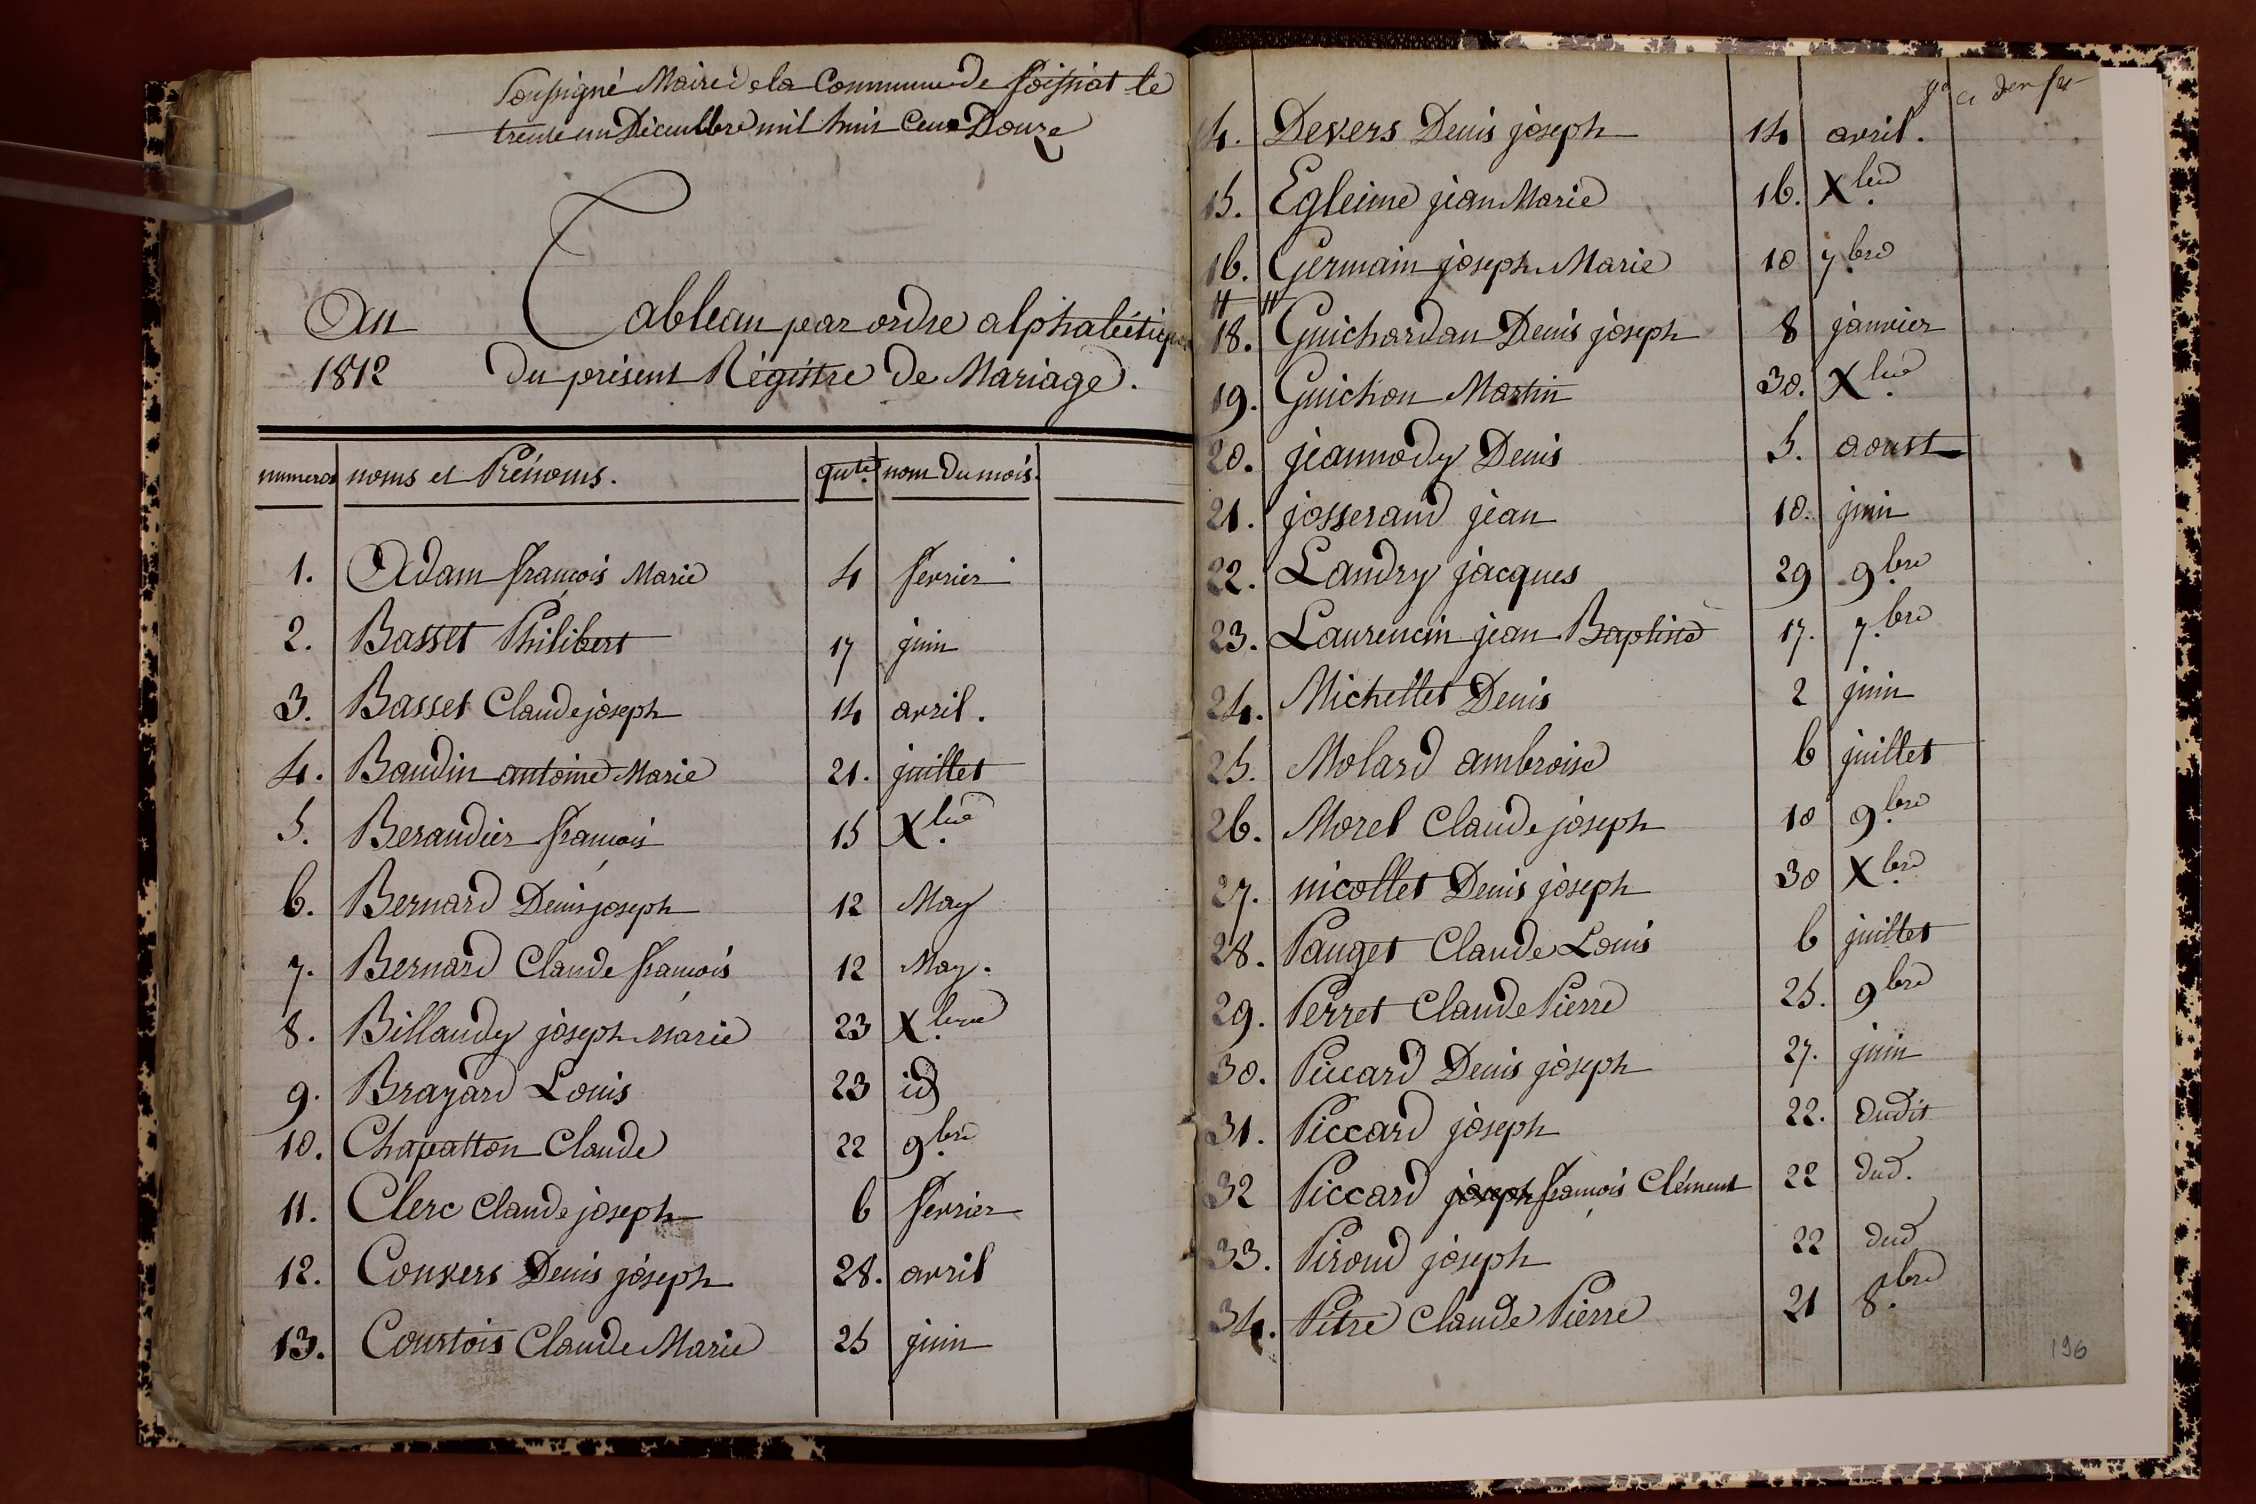 Soussigné Maire de la Commune de foissiat le
trente un Décembre mil huit Cent Douze
An Tableau par ordre alphabétique
1812 du présent Régistre de Mariage.
numeros noms et Prénoms. qute. nom du mois.
1. Adam françois Marie 4 fevrier
2. Basset Philibert 17 juin
3. Basset Claude joseph 14 avril.
4. Baudin antoine Marie 21. juillet
5. Beraudier françois 15 Xbre
6. Bernard Denis joseph 12 May
7. Bernard Claude françois 12 May.
8. Billaudy joseph Marie 23 Xbre
9. Brayard Louis 23 id
10. Chapatton Claude 22 9bre
11. Clerc Claude joseph 6 fevrier
12. Convers Denis joseph 28. avril
13. Courtois Claude Marie 25 juin
14. Devers Denis joseph 14 avril.
15. Egleime jean Marie 16. Xbre
16. Germain joseph Marie 10 7bre
18. Guichardan Denis joseph 8 janvier
19. Guichon Martin 30. Xbre
20. jeannody Denis 5. aoust
21. josserand jean 10. juin
22. Landry jacques 29 9bre
23. Laurencin jean Baptiste 17. 7bre
24. Michellet Denis 2 juin
25. Molard ambroise 6 juillet
26. Morel Claude joseph 10 9bre
27. nicollet Denis joseph 30 Xbre
28. Pauget Claude Louis 6 juillet
29. Perret Claude Pierre 25. 9bre
30. Piccard Denis joseph 27. juin
31. Piccard joseph 22. dudit
32 Piccard joseph françois Clément 22 dud.
33. Piroud joseph 22 dud
34. Pitre Claude Pierre 21 8bre
196